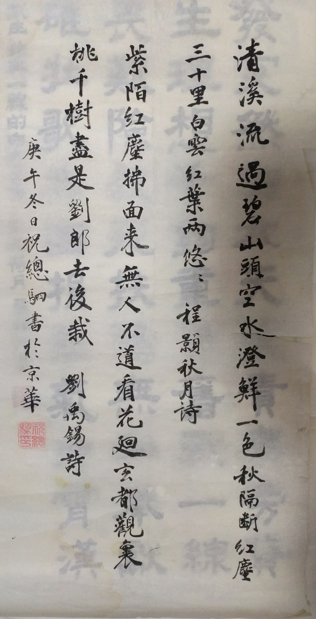 清溪流過碧山頭空水澄鮮一色秋隔斷紅塵
三十里白雲紅葉兩悠〻 程顥秋月詩
紫陌紅塵拂面来無人不道看花迴玄都觀裏
桃千樹盡是劉郎去後栽 劉禹錫詩
庚午冬日祝總駟書於京華